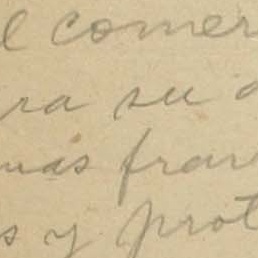 l comer
ra su a
más fran
s y prot